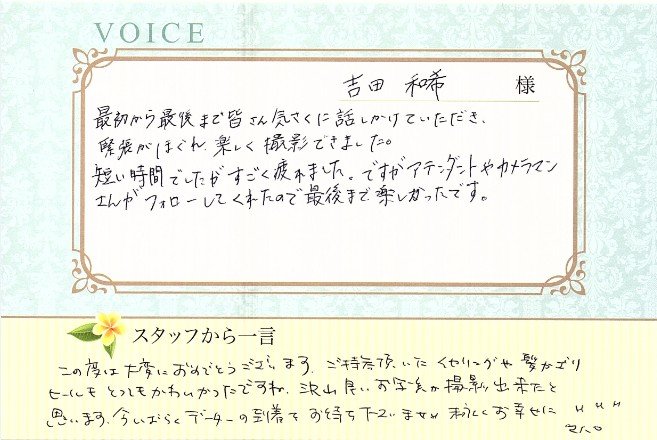 VOICE
吉田 和希 様
最初から最後まで皆さん気さくに話しかけていただき、
緊張がほぐれ、楽しく撮影できました。
短い時間でしたがすごく疲れました。ですがアテンダントやカメラマン
さんがフォローしてくれたので最後まで楽しかったです。
スタッフから一言
この度は大変におめでとうございます。ご持参頂いたイヤリングや髪かざり
ヒールもとってもかわいかったですね。沢山良いお写真が撮影出来たと
思います。今しばらくデーターの到着をお待ち下いませ 末永くお幸せに